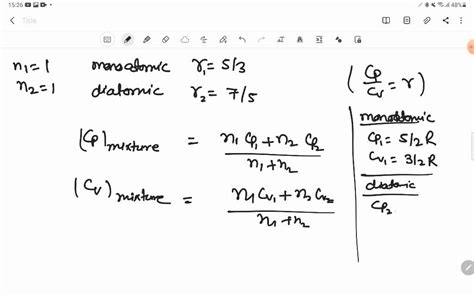 15:26
48%
Title
n₁=1 monoatomic γ₁=5/3
n₂=1 diatomic γ₂=7/5
(Cp/Cv = γ)
(Cp)mixture = n₁Cp₁+n₂Cp₂/n₁+n₂
(Cv)mixture = n₁Cv₁+n₂Cv₂/n₁+n₂
monoatomic
Cp₁=5/2R
Cv₁=3/2R
diatomic
Cp₂